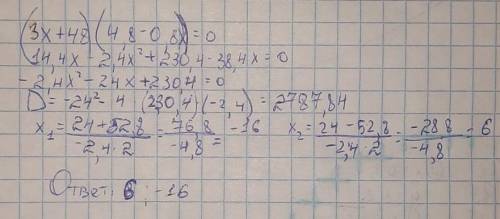 (3x+48)(4,8-0,8x)=0
14,4x-2,4x²+230,4-38,4x=0
-2,4x²-24x+230,4=0
D=-24²-4 (230,4)(-2,4)=2787,84
x₁=24+52,8/-2,4·2=76,8/-4,8=-16 x₂=24-52,8/-2,4·2=-28,8/-4,8=6
Ответ: 6; -16